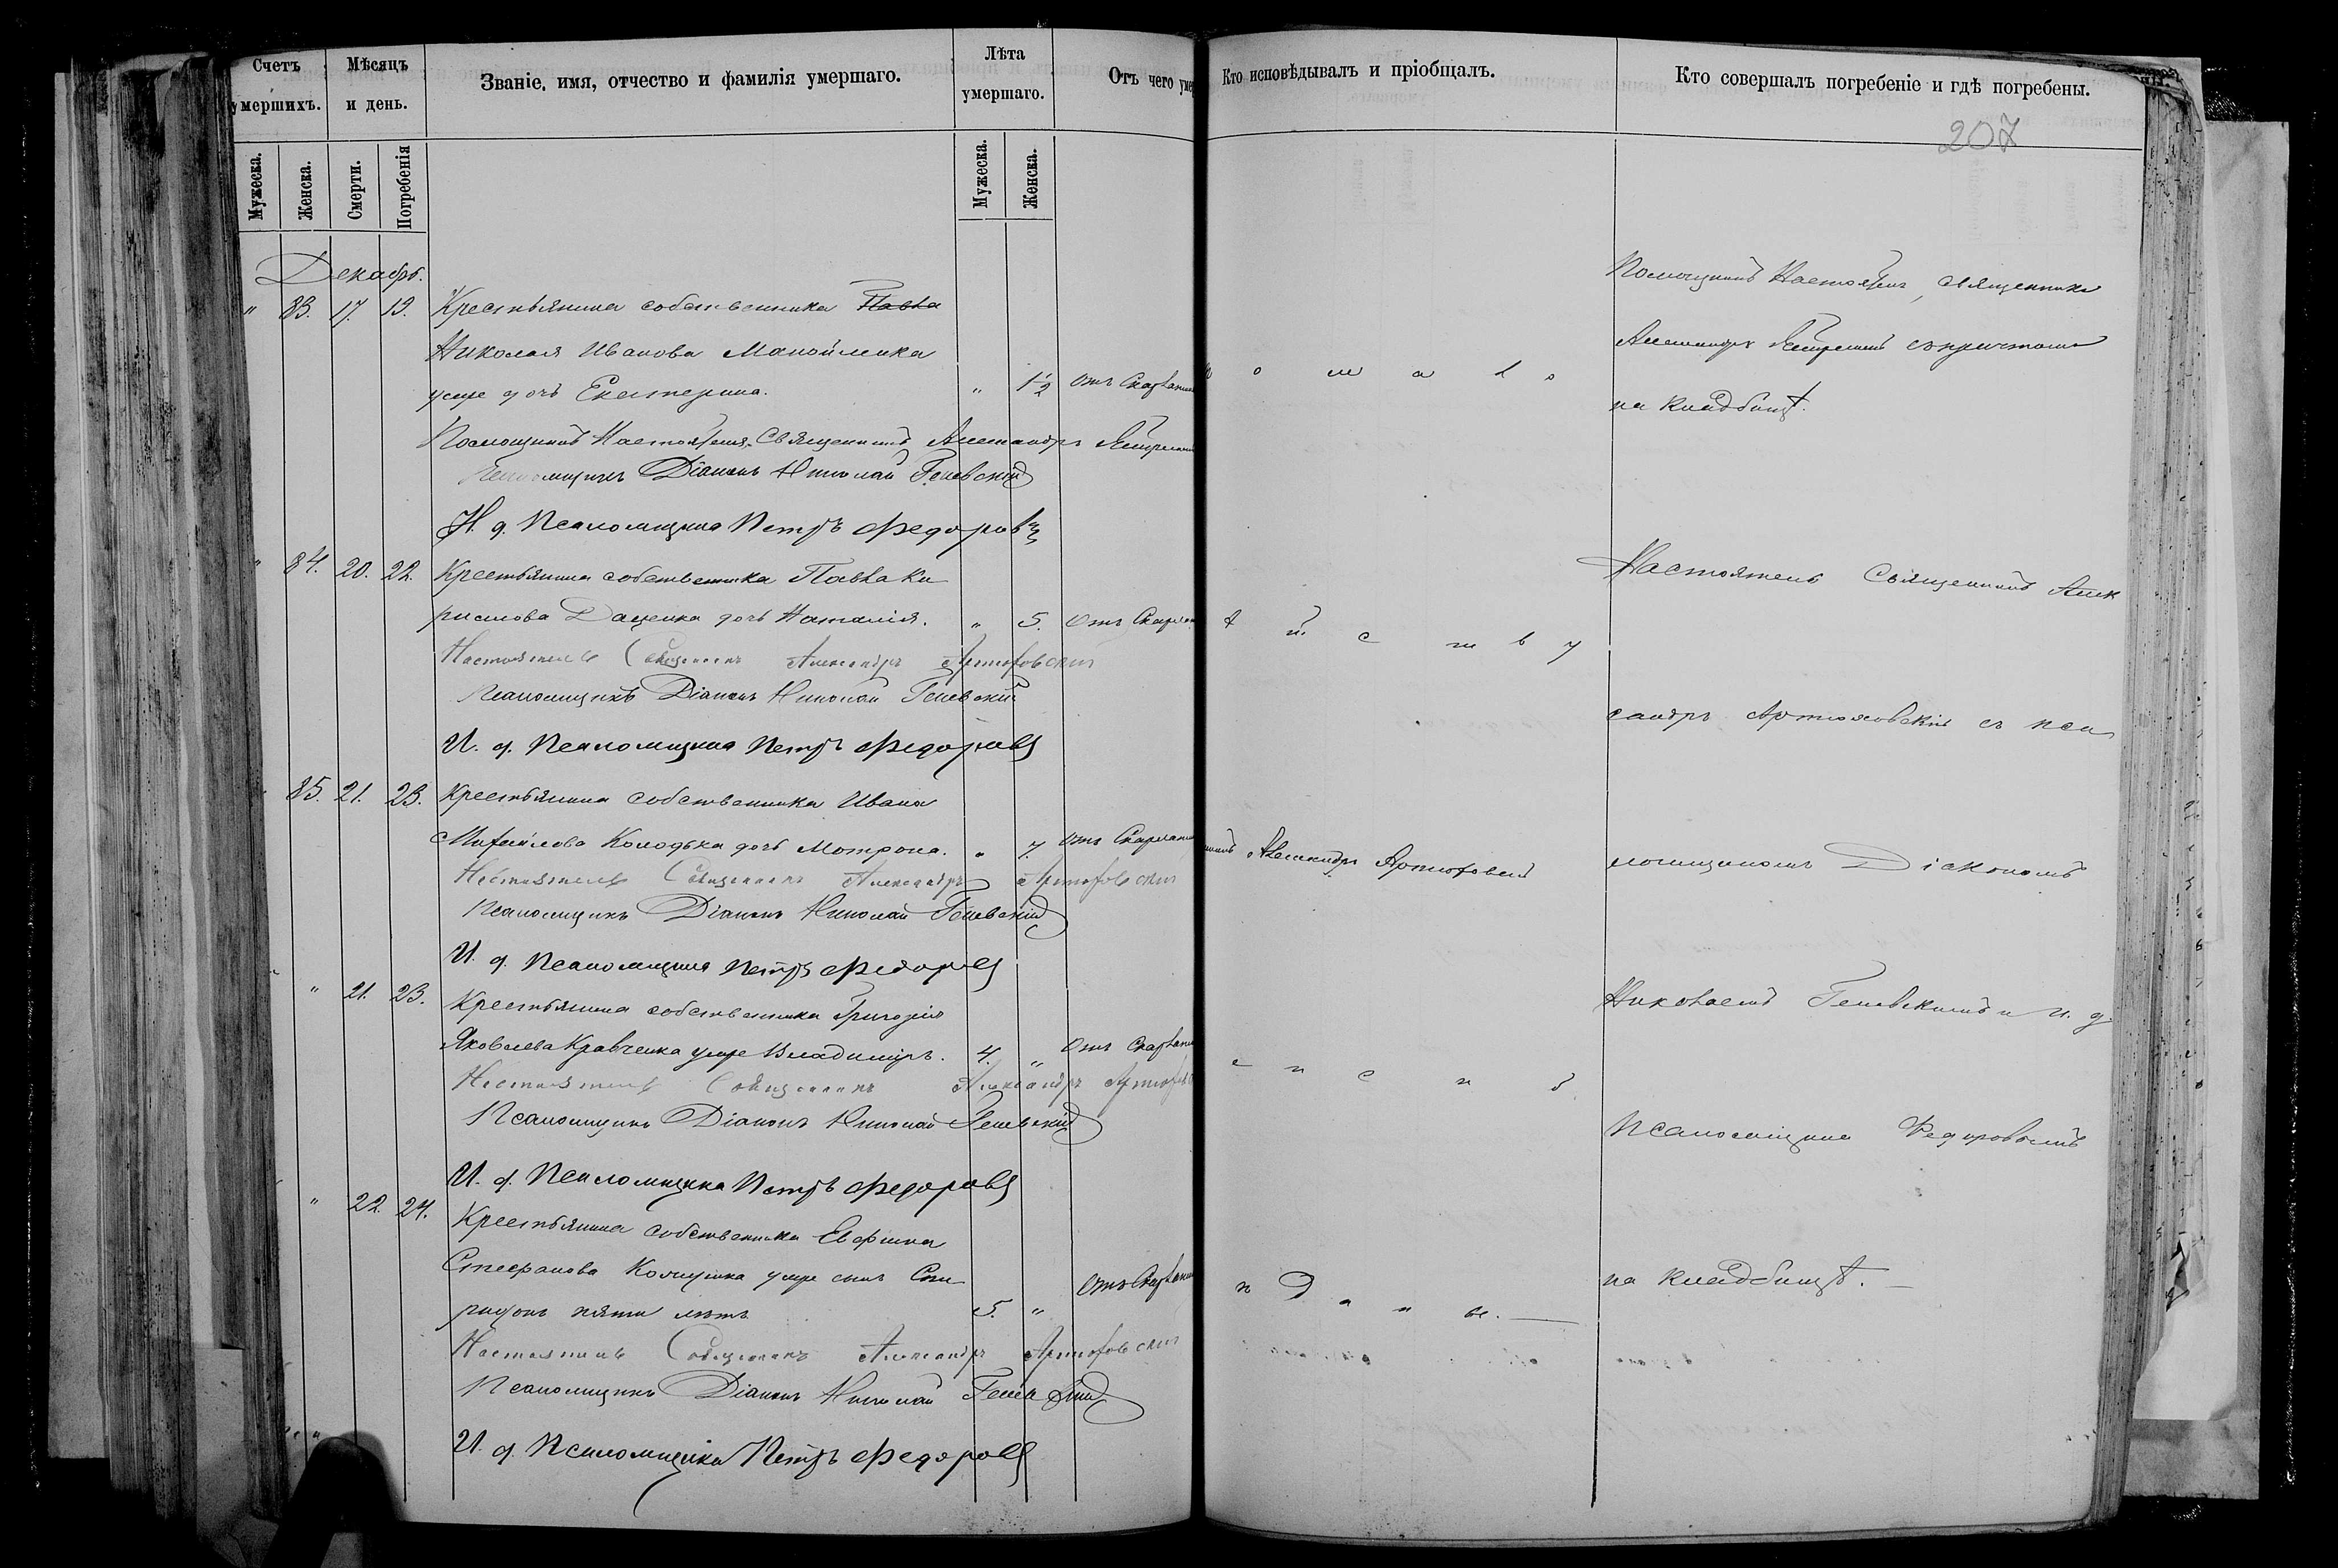 Счетъ умершихъ.
Мѣсяцъ и день.
Званіе, имя, отчество и фамилія умершаго.
Лѣта умершаго.
Отъ чего уме
Кто исповѣдывалъ и пріобщалъ.
Кто совершалъ погребеніе и гдѣ погребены.
207
Мужеска.
Женска.
Смерти.
Погребенія
Мужеска.
Женска.
Декабр.
" 83. 17. 19. Крестьянина собственника Павла
Николая Иванова Манойленка
умре дочь Екатерина. " 1½ отъ Скарлатин
Помощникъ Настоятеля, Священникъ Александръ
Псаломщикъ Діаконъ Николай Геневскій
И. д. Псаломщика Петръ Федоровъ
" 84. 20. 22. Крестьянина собственника Павла Ки
рилова Даценка дочь Наталія. " 5. Отъ Скарлат
Настоятель Священникъ Александръ Артюховскій
Псаломщикъ Діаконъ Николай Геневскій
И. д. Псаломщика Петръ Федоровъ
85. 21. 23. Крестьянина собственника Ивана
Михайлова Колодѣка дочь Мотрона. " 7. отъ Скарлатин
Настоятель Священникъ Александръ Артюховскій
Псаломщикъ Діаконъ Николай Геневскій
И. д. Псаломщика Петръ Федоровъ
" 21. 23. Крестьянина собственника Григорія
Яковлева Кравченка умре Владиміръ. 4. " Отъ Скарлатин
Настоятель Священникъ Александръ Артюховс
Псаломщикъ Діаконъ Николай Геневскій
И. д. Псаломщика Петръ Федоровъ
" 22. 24. Крестьянина собственника Евфима
Стефанова умре сынъ Спи
ридонъ пяти лѣтъ 5. " Отъ Скарлатин
Настоятель Священникъ Александръ Артюховскій
Псаломщикъ Діаконъ Николай Геневскій
И. д. Псаломщика Петръ Федоровъ
о м а л о
ѣ т с т в у
никъ Александръ Артюховскій
Помощникъ Настоятеля, священникъ
Александръ съ причтомъ
на кладбищѣ.
Настоятель Священникъ Алек
сандръ Артюховскій съ пса
ломщикомъ Діакономъ
Николаемъ Геневскимъ и И. д.
Псаломщика Федоровымъ
на кладбищѣ.